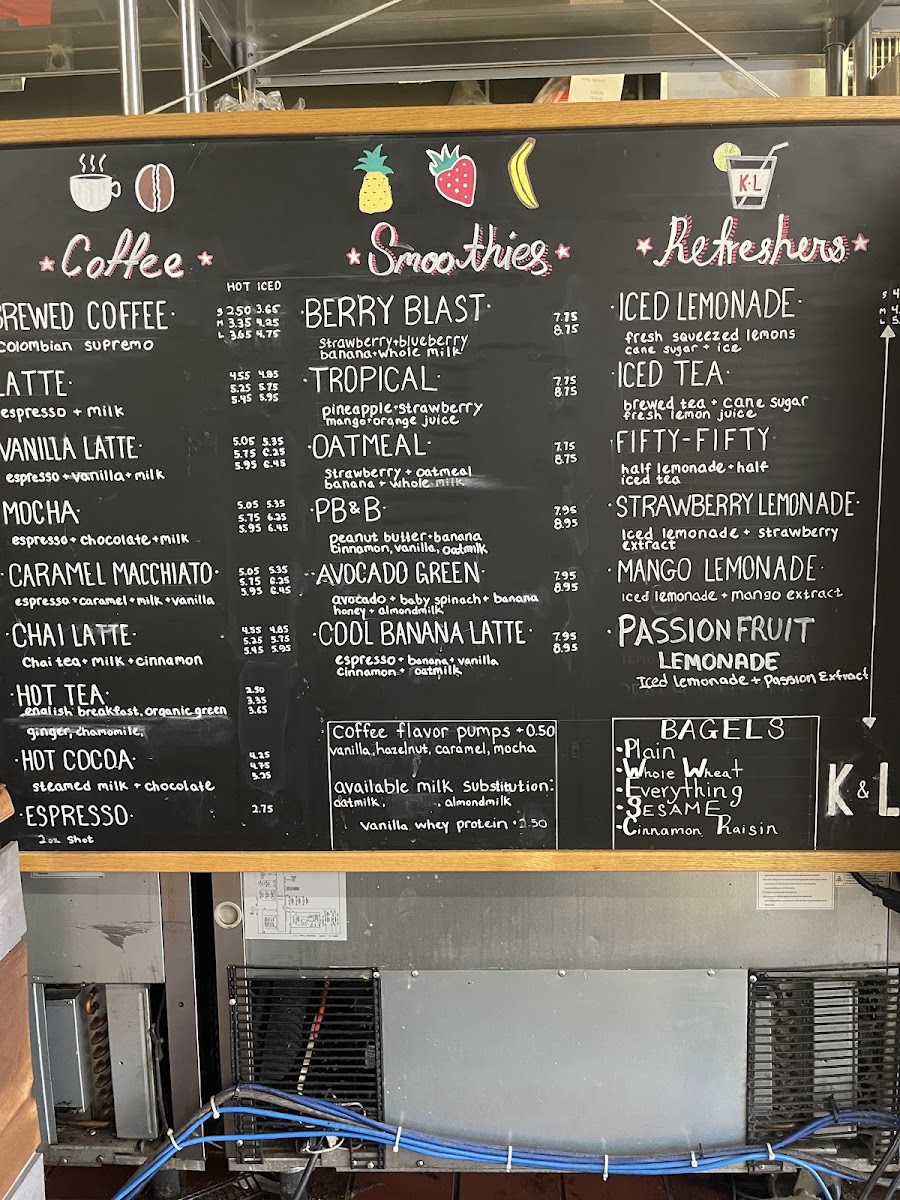 K•L
Coffee
HOT ICED
BREWED COFFEE
S 2.50 3.65
M 3.35 4.25
L 3.65 4.75
Colombian Supremo
LATTE
4.55 4.85
5.25 5.75
5.45 5.95
espresso + milk
VANILLA LATTE
5.05 5.35
5.75 6.25
5.95 6.45
espresso + vanilla + milk
MOCHA
5.05 5.35
5.75 6.25
5.95 6.45
espresso + chocolate + milk
CARAMEL MACCHIATO
5.05 5.35
5.75 6.25
5.95 6.45
espresso + caramel + milk + vanilla
CHAI LATTE
4.55 4.85
5.25 5.75
5.45 5.95
Chai tea + milk + cinnamon
HOT TEA
2.50
3.35
3.65
english breakfast, organic green
ginger, chamomile,
HOT COCOA
4.25
4.75
5.25
steamed milk + chocolate
ESPRESSO
2.75
2oz shot
Smoothies
BERRY BLAST
7.75
8.75
strawberry + blueberry
banana + whole milk
TROPICAL
7.75
8.75
pineapple + strawberry
mango + orange juice
OATMEAL
7.75
8.75
Strawberry + oatmeal
banana + whole milk
PB&B
7.95
8.95
peanut butter + banana
cinnamon, vanilla, oatmilk
AVOCADO GREEN
7.95
8.95
avocado + baby spinach + banana
honey + almondmilk
COOL BANANA LATTE
7.95
8.95
espresso + banana + vanilla
Cinnamon + oatmilk
Coffee flavor pumps + 0.50
vanilla, hazelnut, caramel, mocha
available milk substitution:
oatmilk, , almondmilk
vanilla whey protein +
Refreshers
ICED LEMONADE
S
M
L
fresh squeezed lemons
cane sugar + ice
ICED TEA
brewed tea + cane sugar
fresh lemon juice
FIFTY-FIFTY
half lemonade + half
iced tea
STRAWBERRY LEMONADE
Iced lemonade + strawberry
extract
MANGO LEMONADE
iced lemonade + mango extract
PASSION FRUIT
LEMONADE
Iced lemonade + Passion Extract
BAGELS
Plain
Whole Wheat
Everything
SESAME
Cinnamon Raisin
K&L